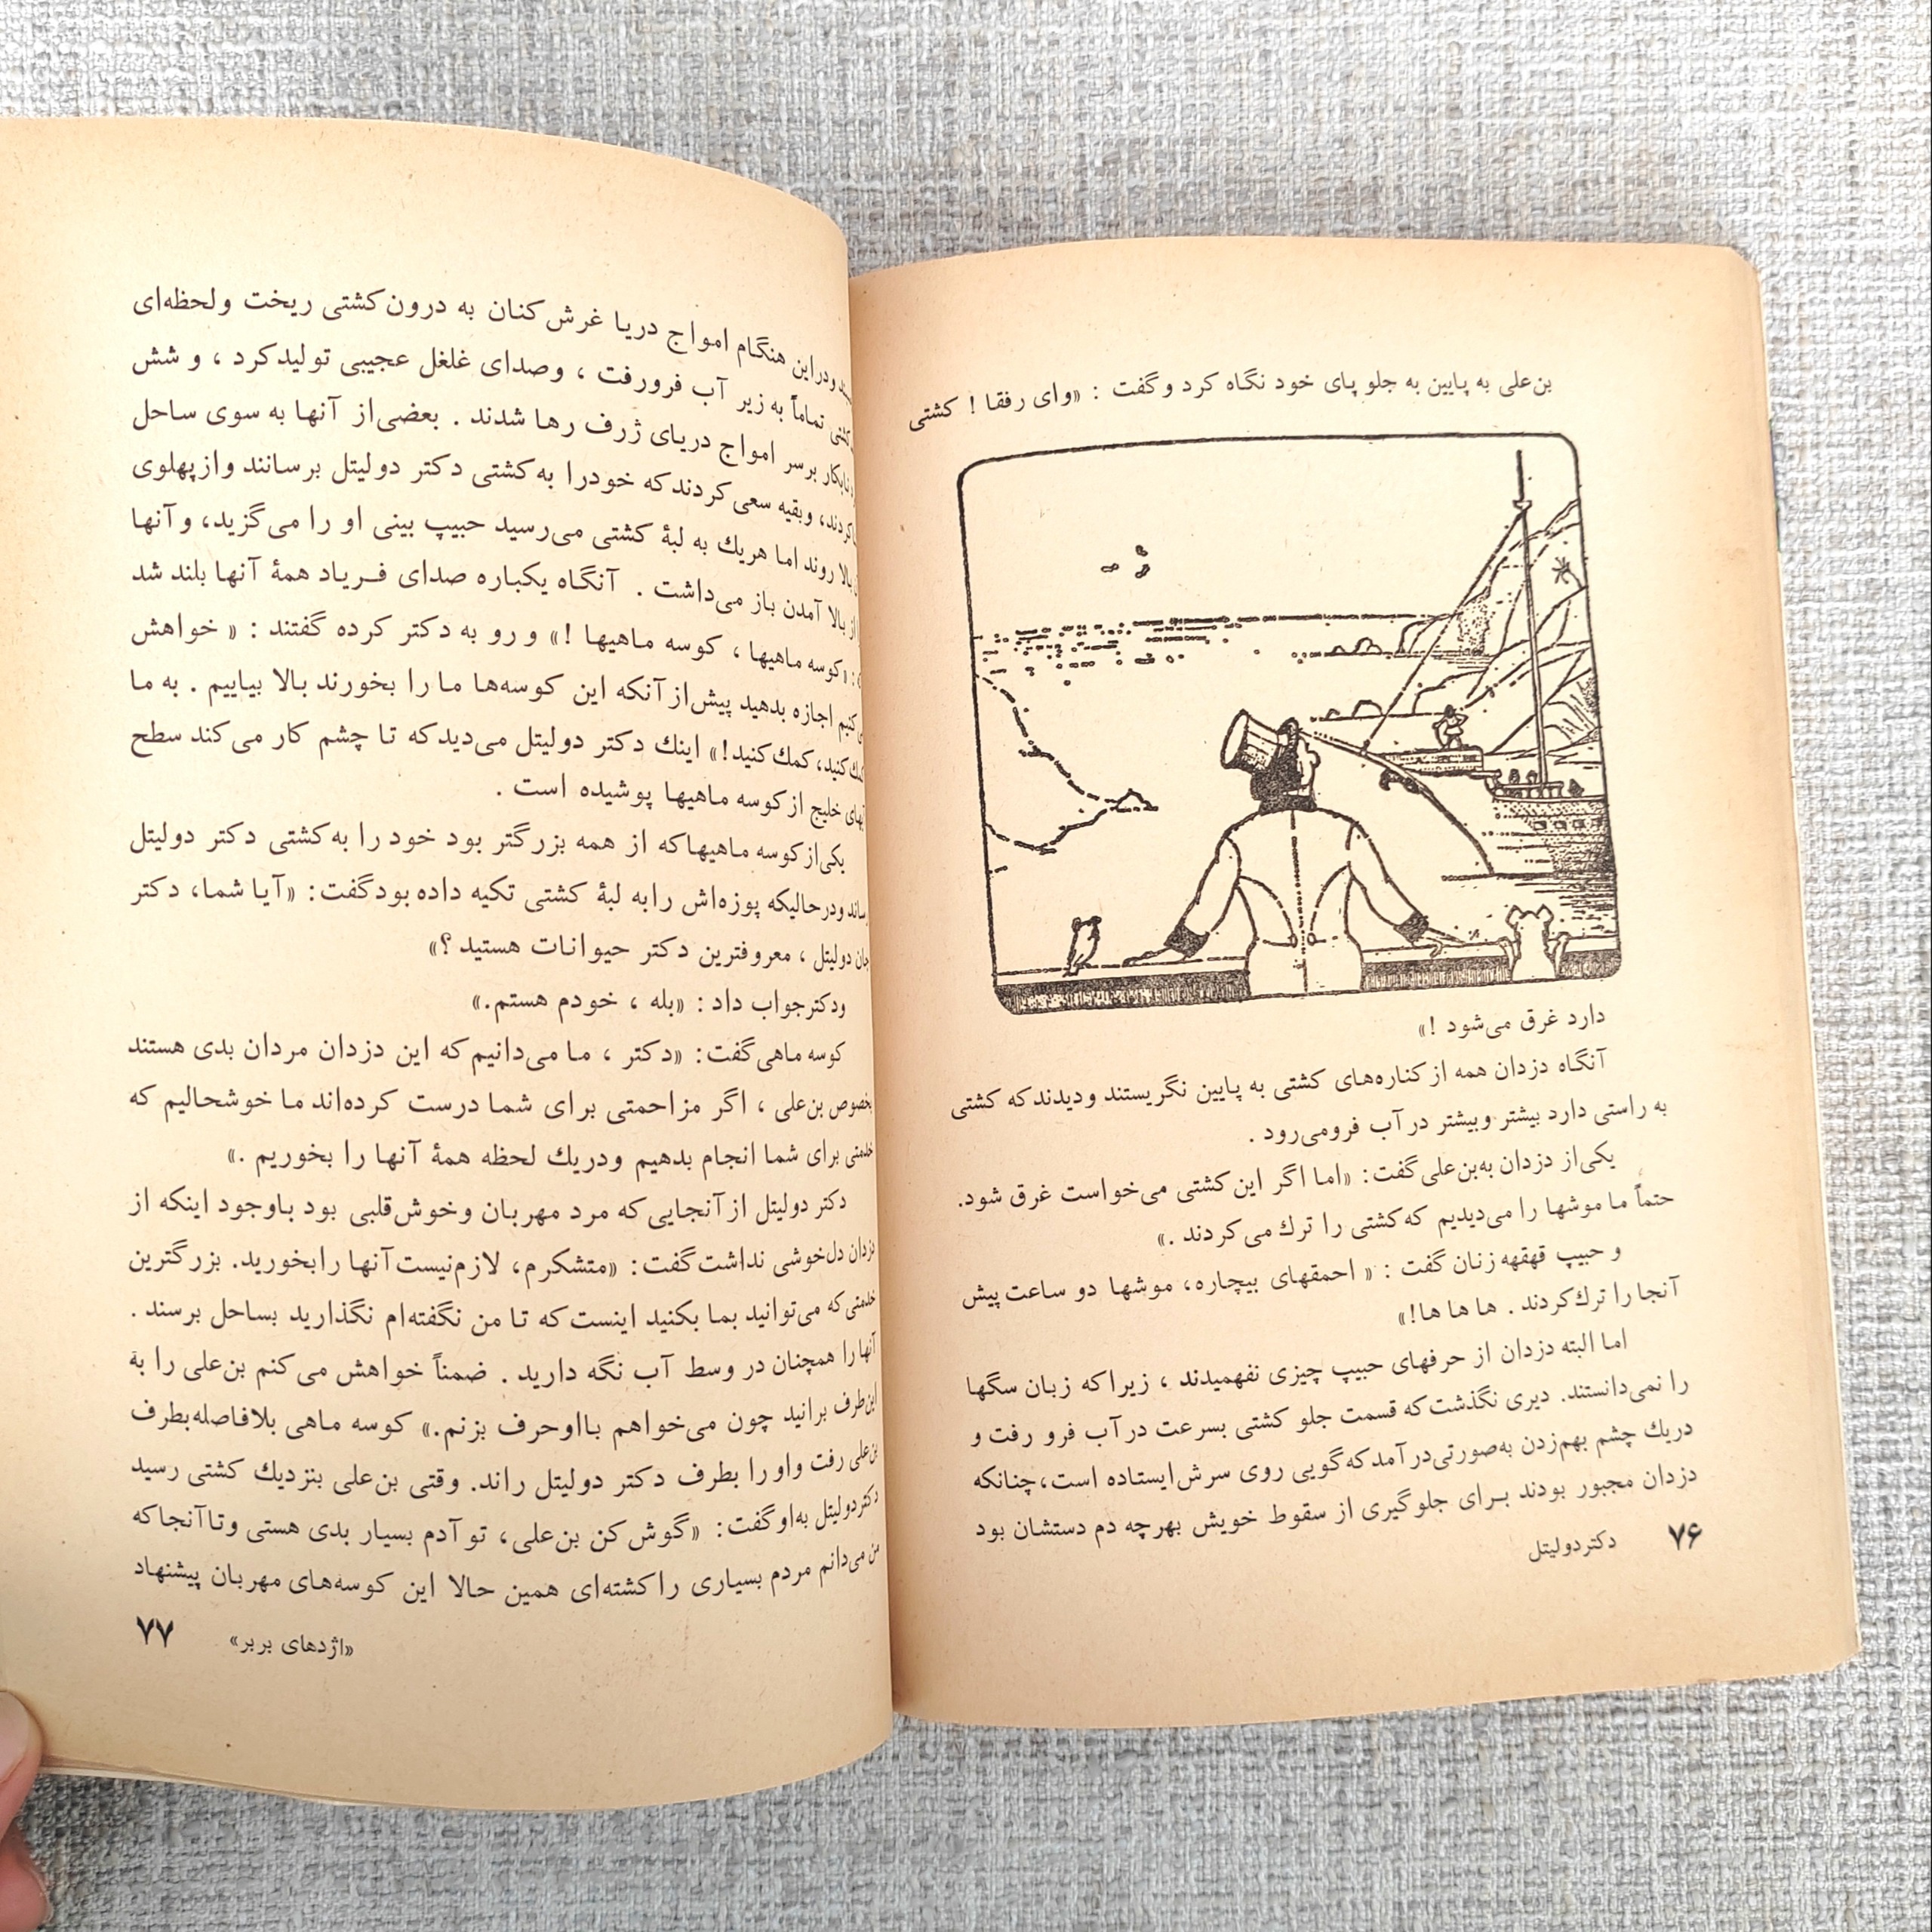 بن‌علی به پایین به جلو پای خود نگاه کرد وگفت : «وای رفقا ! کشتی
دارد غرق می‌شود !»
آنگاه دزدان همه از کناره‌های کشتی به پایین نگریستند ودیدند که کشتی
به راستی دارد بیشتر وبیشتر در آب فرومی‌رود .
یکی از دزدان به‌بن‌علی گفت: «اما اگر این کشتی می‌خواست غرق شود.
حتماً ما موشها را می‌دیدیم که کشتی را ترك می‌کردند .»
و حبیپ قهقهه زنان گفت : « احمقهای بیچاره، موشها دو ساعت پیش
آنجا را ترك کردند . ها ها ها!»
اما البته دزدان از حرفهای حبیپ چیزی نفهمیدند ، زیرا که زبان سگها
را نمی‌دانستند. دیری نگذشت که قسمت جلو کشتی بسرعت در آب فرو رفت و
دریك چشم بهم‌زدن به‌صورتی در آمد که گویی روی سرش ایستاده است، چنانکه
دزدان مجبور بودند برای جلوگیری از سقوط خویش بهرچه دم دستشان بود
۷۶ دکتر دولیتل
ودراین هنگام امواج دریا غرش کنان به درون کشتی ریخت ولحظه‌ای
کشتی تماماً به زیر آب فرورفت ، وصدای غلغل عجیبی تولید کرد ، و شش
نابکار برسر امواج دریای ژرف رها شدند . بعضی از آنها به سوی ساحل
کردند، وبقیه سعی کردند که خودرا به کشتی دکتر دولیتل برسانند واز پهلوی
بالا روند اما هریك به لبهٔ کشتی می‌رسید حبیپ بینی او را می‌گزید، و آنها
از بالا آمدن باز می‌داشت . آنگاه یکباره صدای فریاد همهٔ آنها بلند شد
: «کوسه ماهیها ، کوسه ماهیها !» و رو به دکتر کرده گفتند : « خواهش
می‌کنیم اجازه بدهید پیش از آنکه این کوسه‌ها ما را بخورند بالا بیاییم . به ما
کمك کنید، کمك کنید!» اینك دکتر دولیتل می‌دید که تا چشم کار می‌کند سطح
آبهای خلیج از کوسه ماهیها پوشیده است .
یکی از کوسه ماهیها که از همه بزرگتر بود خود را به کشتی دکتر دولیتل
رساند ودرحالیکه پوزه‌اش را به لبهٔ کشتی تکیه داده بود گفت: «آیا شما، دکتر
جان دولیتل ، معروفترین دکتر حیوانات هستید ؟»
ودکتر جواب داد : «بله ، خودم هستم.»
کوسه ماهی گفت: «دکتر ، ما می‌دانیم که این دزدان مردان بدی هستند
بخصوص بن‌علی ، اگر مزاحمتی برای شما درست کرده‌اند ما خوشحالیم که
خدمتی برای شما انجام بدهیم ودریك لحظه همهٔ آنها را بخوریم .»
دکتر دولیتل از آنجایی که مرد مهربان وخوش‌قلبی بود باوجود اینکه از
دزدان دل‌خوشی نداشت گفت: «متشکرم، لازم نیست آنها رابخورید. بزرگترین
خدمتی که می‌توانید بما بکنید اینست که تا من نگفته‌ام نگذارید بساحل برسند .
آنها را همچنان در وسط آب نگه دارید . ضمناً خواهش می‌کنم بن‌علی را به
این‌طرف برانید چون می‌خواهم بااوحرف بزنم.» کوسه ماهی بلافاصله بطرف
بن‌علی رفت واو را بطرف دکتر دولیتل راند. وقتی بن‌علی بنزدیك کشتی رسید
دکتردولیتل به‌او گفت: «گوش کن بن‌علی، تو آدم بسیار بدی هستی وتا آنجا که
من می‌دانم مردم بسیاری را کشته‌ای همین حالا این کوسه‌های مهربان پیشنهاد
«اژدهای بربر» ۷۷